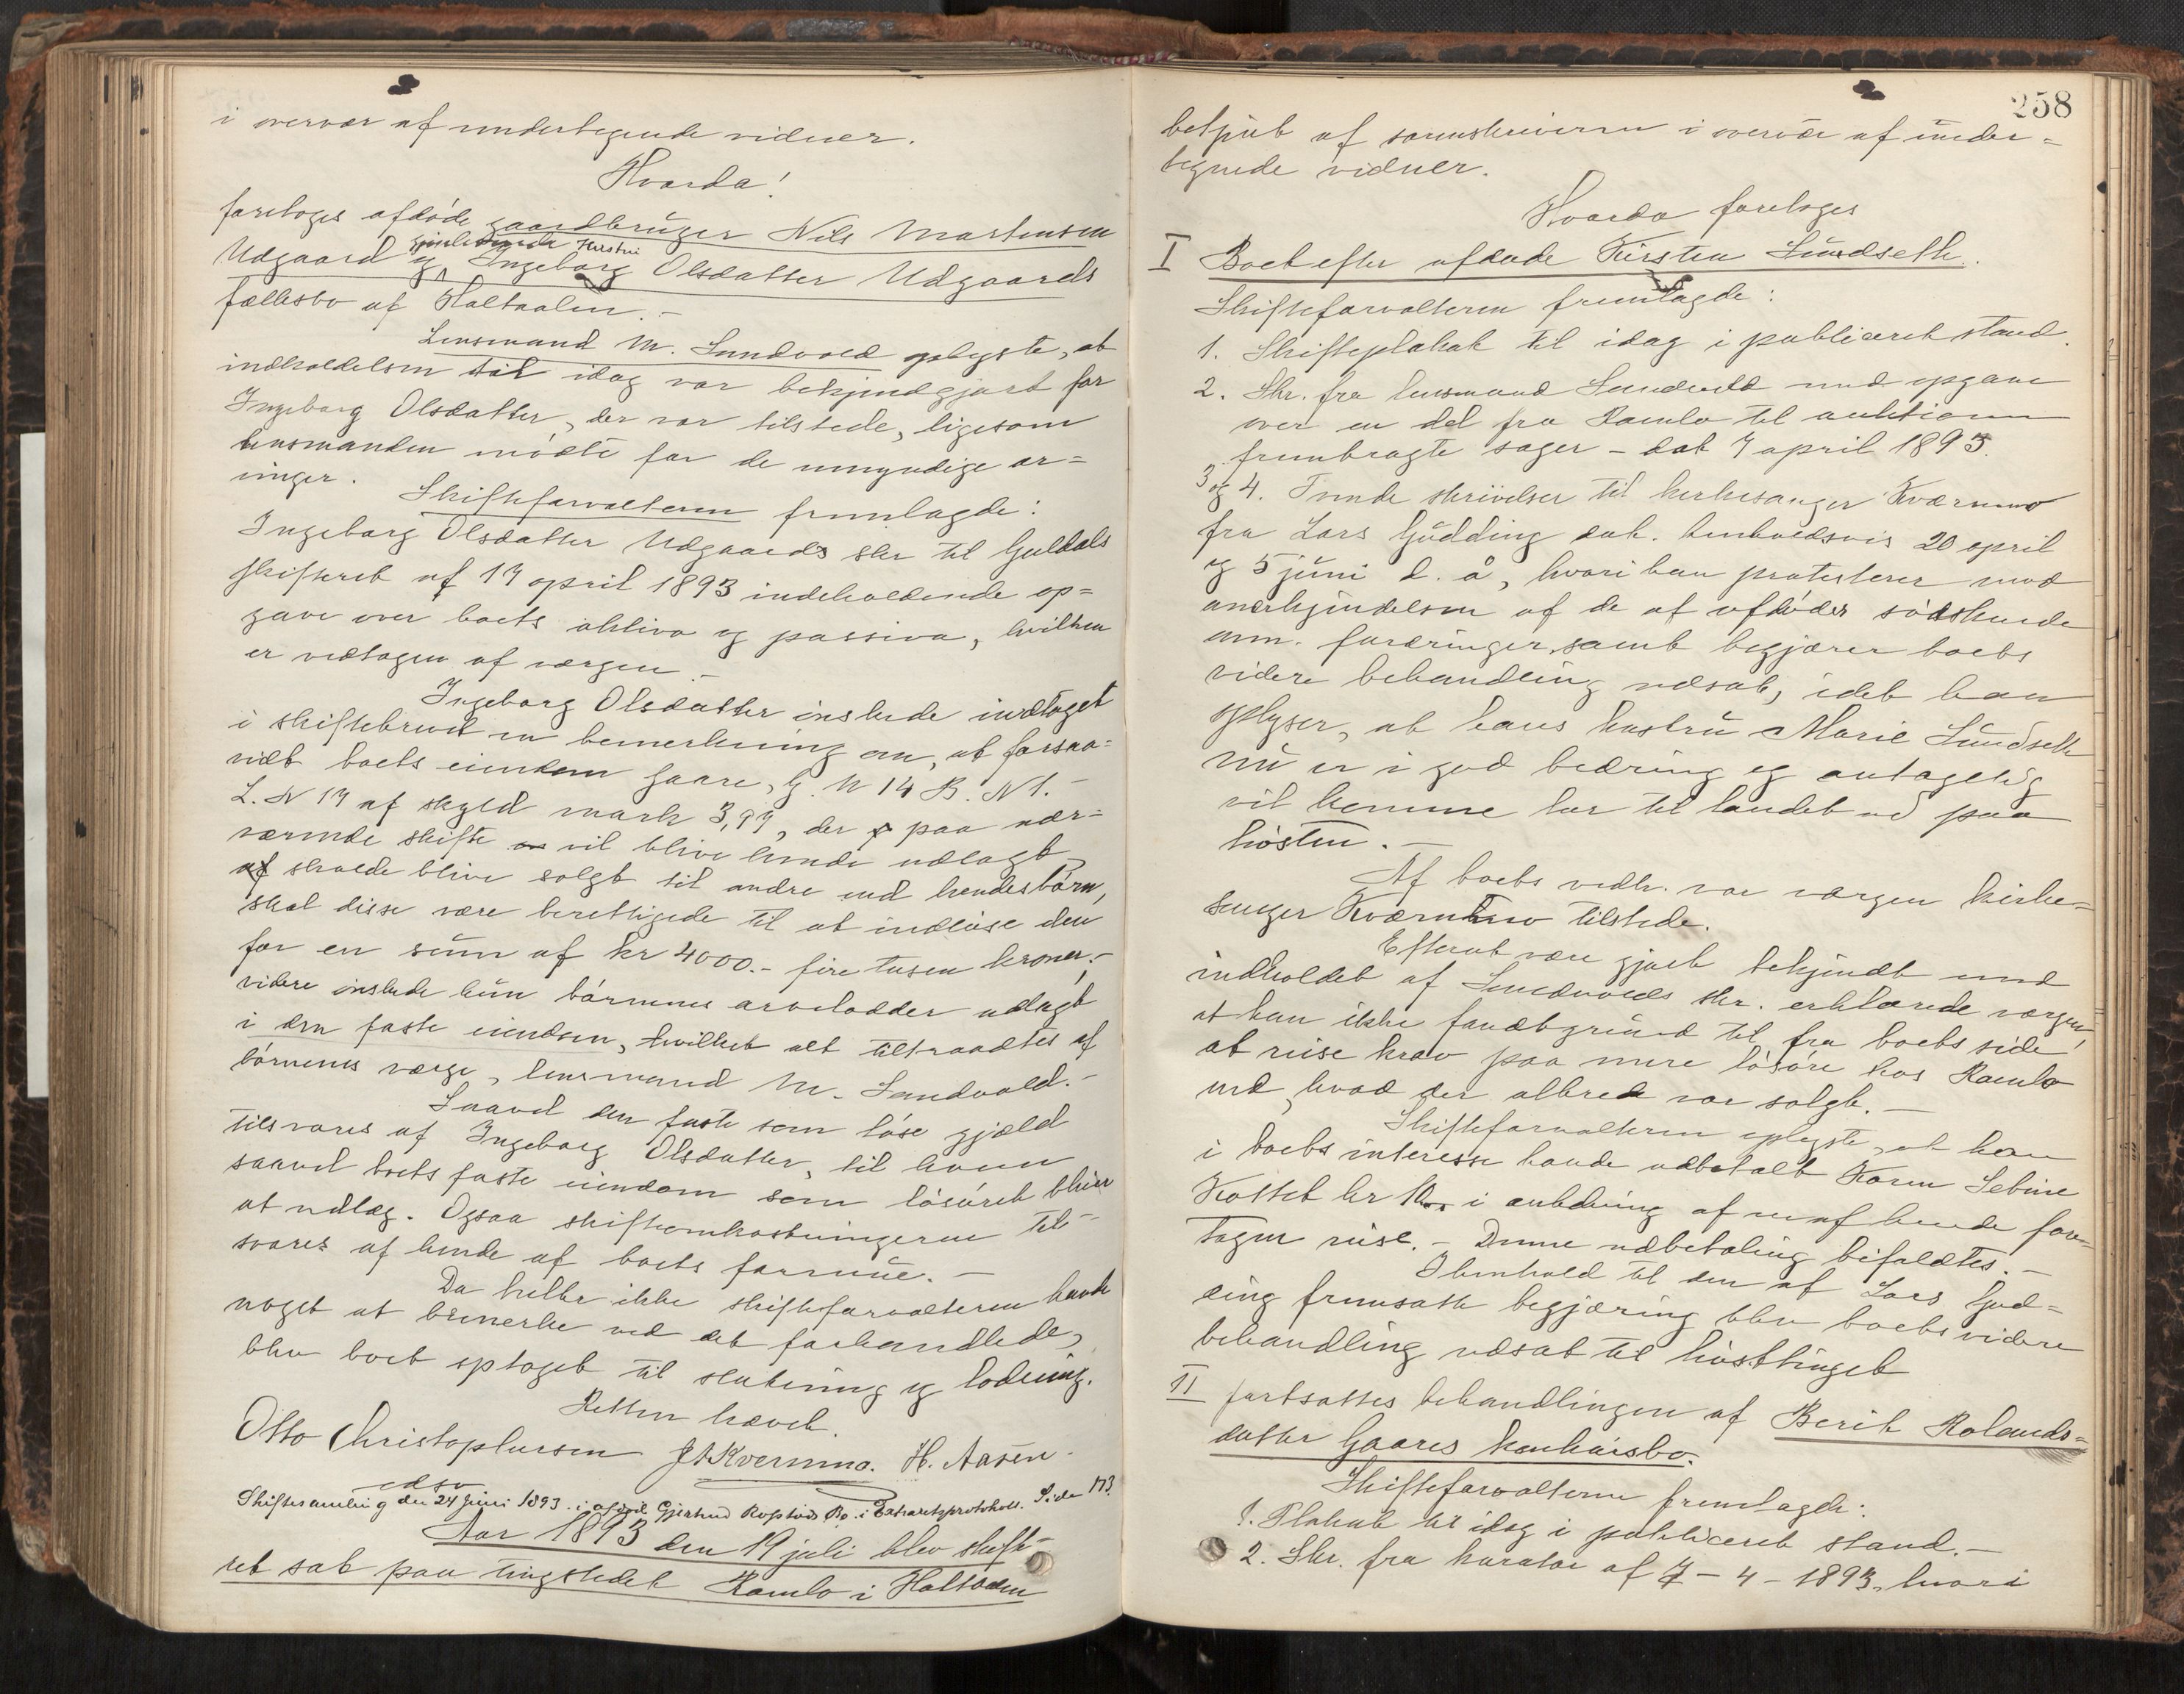 i overvær af undertegnede vidner.
Hvorda!
foretoges afdøde gaardbruger Nils Mortensen
gjenlevende hustru
Udgaard og Ingeborg Olsdatter Udgaards
fællesbo af Holtaalen. -
Lensmand M. Sundvold oplyste, at
indkaldelsen til idag var bekjendtgjort for
Ingeborg Olsdatter, der var tilstede, ligesom
lensmanden mødte for de umyndige ar=
vinger. Skifteforvalteren fremlagde:
Ingeborg Olsdatter Udgaards skr til Guldals
skifteret af 17 april 1893 indeholdende op=
gave over boets aktiva og passiva, hvilken
er vedtagen af værgen. -
Ingeborg Olsdatter ønskede indtaget
i skiftebrevet en bemerkning om, at forsaa=
vidt boets eiendom Gaare, G. N 14 B. N 1. -
L. N 17 af skyld mark 3,99, der paa nær=
værende skifte vil blive hende udlagt
skulde blive solgt til andre end hendes børn,
skal disse være berettigede til at indløse den
for en sum af kr 4000.- fire tusen kroner.-
videre ønskede hun børnenes arvelodder udlagt
i den faste eiendom, hvilket alt tiltraadtes af
børnenes værge, lensmand M. Sundvold. -
Saavel den faste som løse gjæld
tilsvares af Ingeborg Olsdatter, til hvem
saavel boets faste eiendom som løsøret bliver
at udlæg. Ogsaa skifteomkostningerne til-
svares af hende af boets formue. -
Da heller ikke skifteforvalteren havde
noget at bemerke ved det forhandlede,
blev boet optaget til slutning og lodning.
Retten hævet.
Otto Christophersen J A Kvernmo. H. Aasen.
edsv
Skiftesamling den 24 juni 1893 i afdøde Gjertrud Bo. i Extraretsprotokoll. Side 173.
Aar 1893 den 19 juli blev skifte-
ret sat paa tingstedet Ramlo i Holtaalen
258
betjent af sorenskriveren i overvær af under=
tegnede vidner.
Hvorda foretoges
I Boet efter afdøde Kirsten Lundseth.
Skifteforvalteren fremlagde:
1. Skifteplakat til idag i publiceret stand.
2. Skr. fra lensmand Sundvold med opgave
over en del fra Ramlo til auktionen
frembragte sager - dat 7 april 1893.
3 og 4. Tvende skrivelser til kirkesanger Kværnmo
fra Lars Gudding dat. henholdsvis 20 april
og 5 juni d. å, hvori han protesterer mod
anerkjendelsen af de af afdødes søskende
anm. fordringer, samt begjærer boets
videre behandling udsat, idet han
oplyser, at hans hustru Marie Lundseth
nu er i god bedring og antagelig
vil komme her til landet ud paa
høsten. -
Af boets vedk. var værgen kirke=
sanger Kværnmo tilstede.
Efterat være gjort bekjendt med
indholdet af Sundvolds skr. erklærede værgen,
at han ikke fandt grund til fra boets side
at reise krav paa mere løsøre hos Ramlo
end hvad der allerede var solgt. -
Skifteforvalteren oplyste, at han
i boets interesse havde udbetalt Karen Sebine
Kottet kr 10.. i anledning af en af hende fore-
tagen reise. - Denne udbetaling bifaldtes. -
I henhold til den af Lars Gud=
ding fremsatte begjæring blev boets videre
behandling udsat til høsttinget
II fortsattes behandlingen af Berit Rolands=
datter Gaares konkursbo.
Skifteforvalteren fremlagde:
1. Plakat til idag i publiceret stand. -
2. Skr. fra kurator af 7 - 4 - 1893, hvori